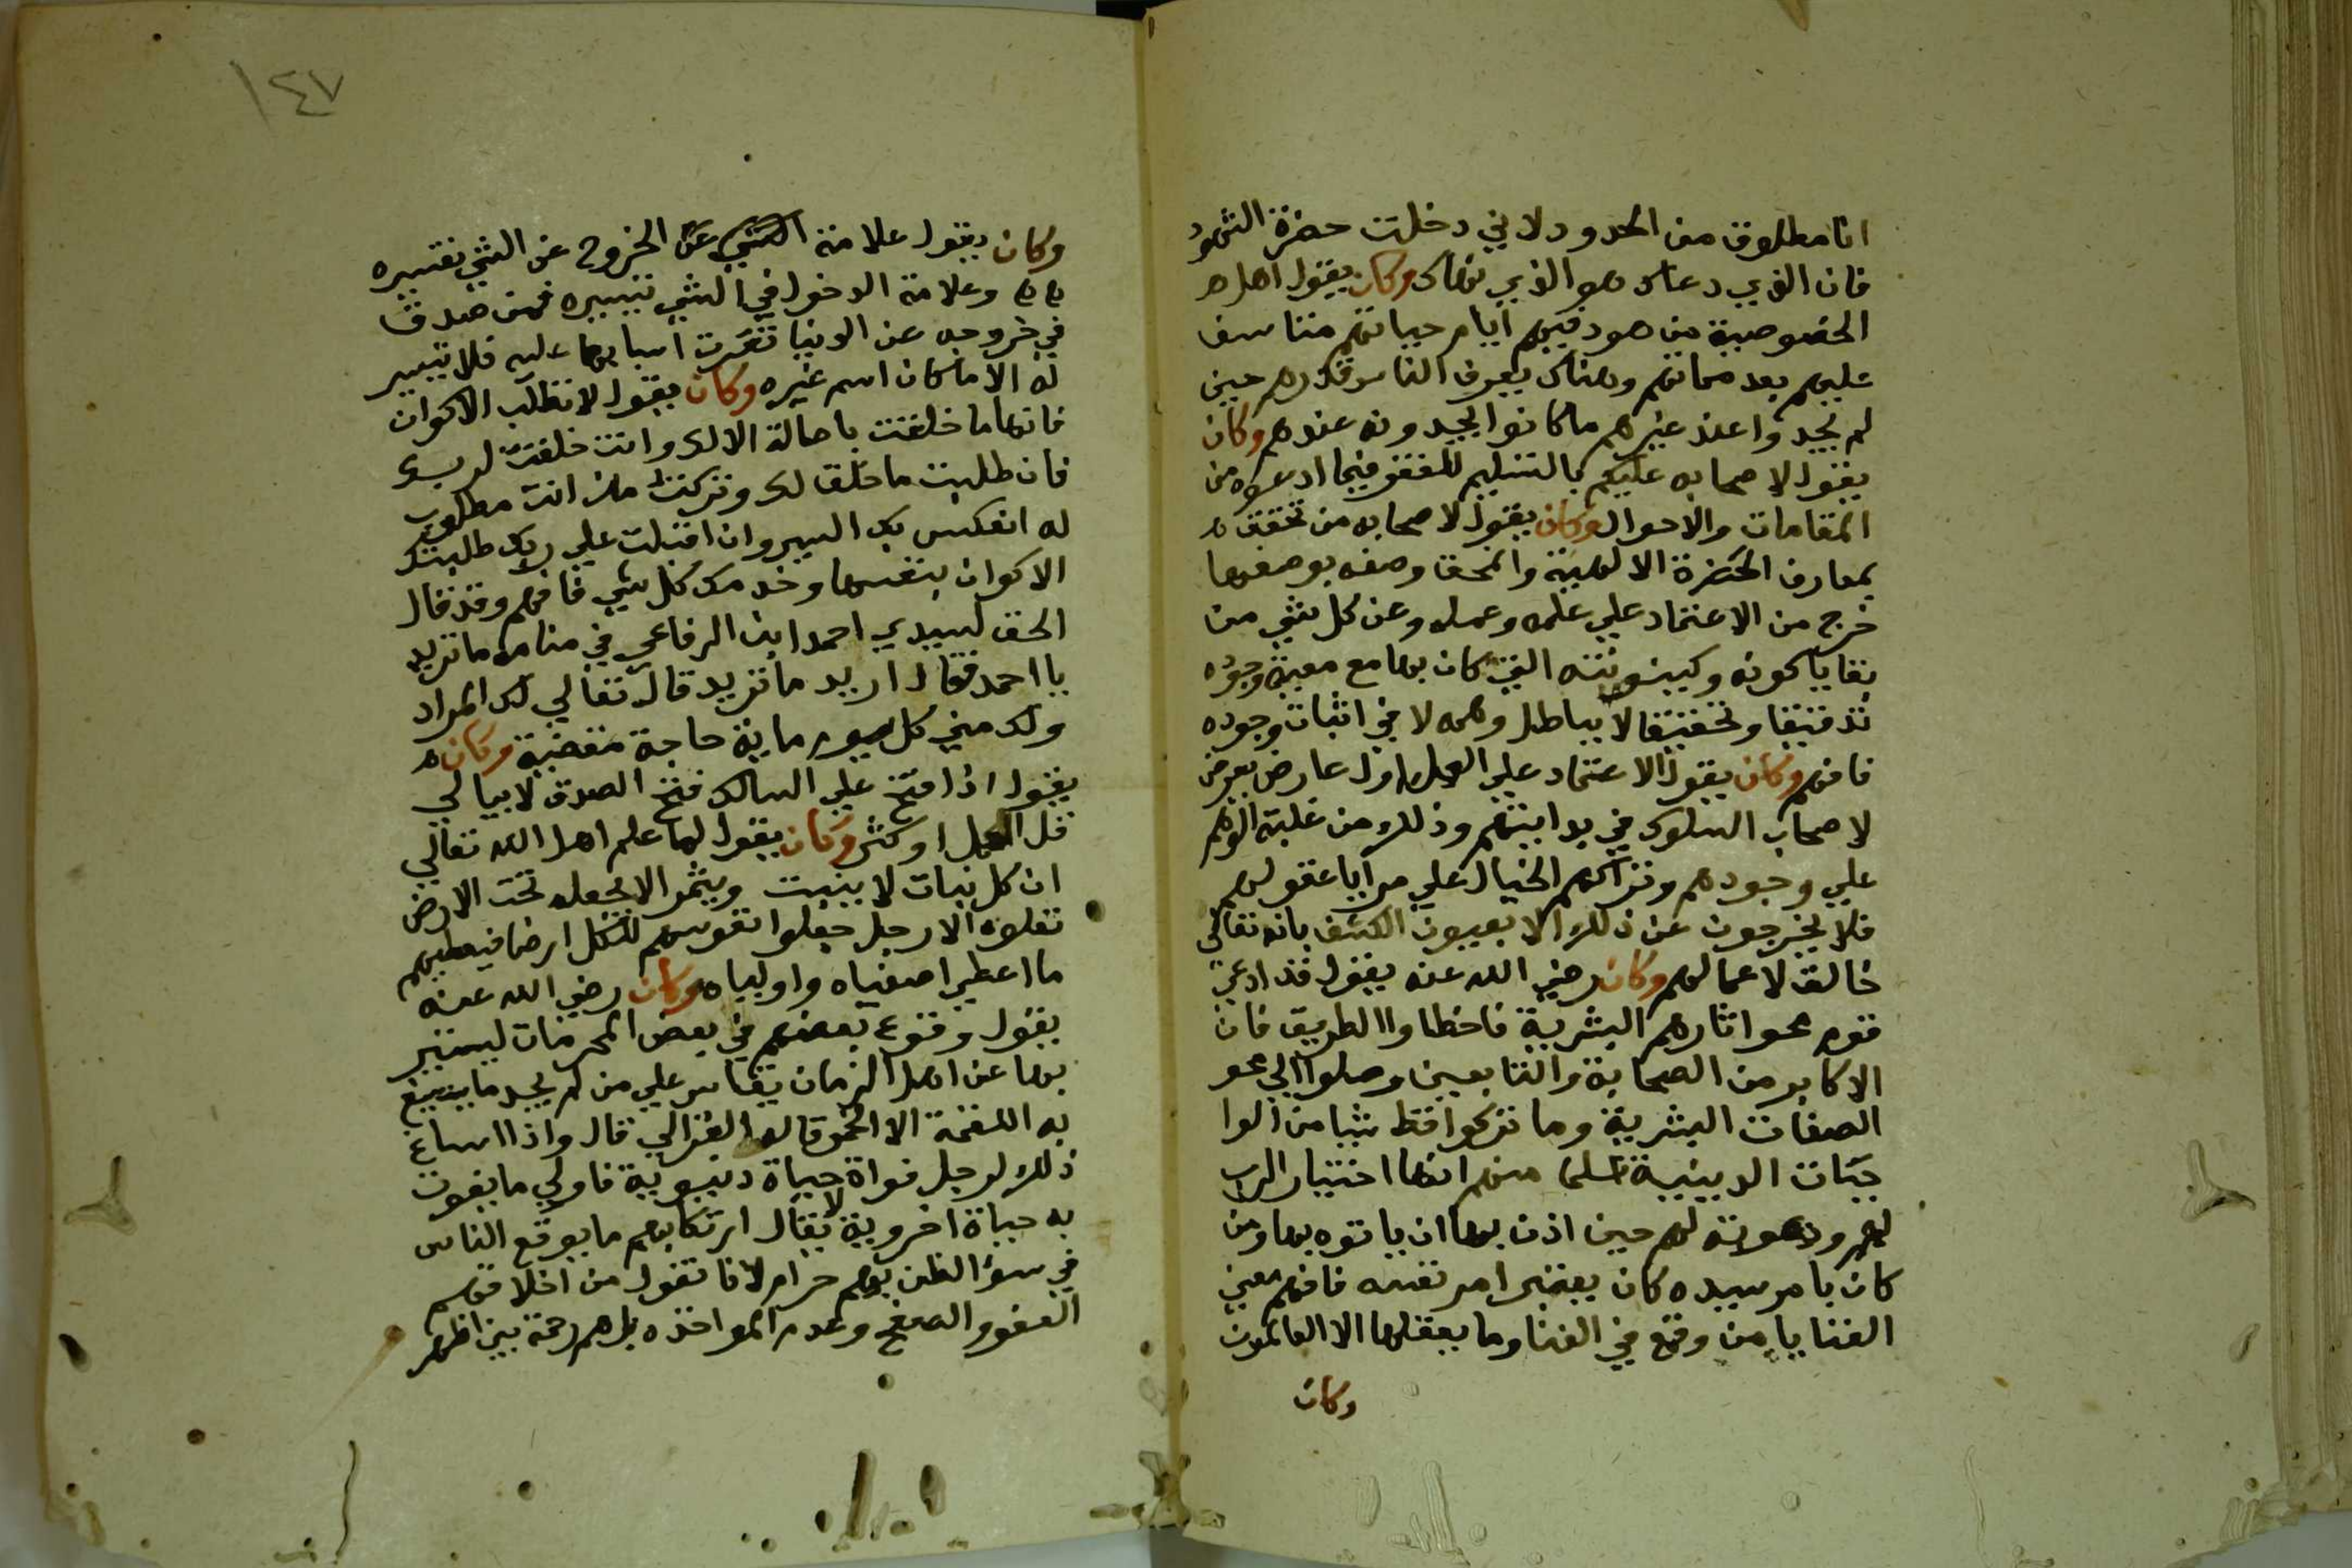 انا مطلوق من الحدود لاني دخلت حضرة الشهود
فان الذي دعاك هو الذي نهاك وكان يقول اهل
الخصوصية من هود فيهم ايام حياتهم متاسف
عليهم بعد مماتهم وهناك يعرف الناس قدرهم حين
لم يجدوا عند غيرهم ما كانوا يجدونه عندهم وكان
يقول لاصحابه عليكم بالتسليم للفقر فيما ادعوه من
المقامات والاحوال وكان يقول لاصحابه من تحقق
بمعارف الحضرة الالهية والمحق وصفه بوصفها
خرج من الاعتماد علي علمه وعمله وعن كل شي من
بقايا كونه وكينونته التي كان بها مع معية وجوده
تدقيقا وتحقيقا لا بباطل وهم لا في اثبات وجوده
فافهم وكان يقول الاعتماد علي العمل اول عارض يعرض
لاصحاب السلوك في بدايتهم وذلك من غلبة الوهم
علي وجودهم وتراكم الخيال علي مرايا عقولهم
فلا يخرجون عن ذلك الا بعيون الكشف بانه تعالي
خالق لاعمالهم وكان رضي الله عنه يقول قد ادعي
قوم محو اثارهم البشرية فاخطاوا الطريق فان
الاكابر من الصحابة والتابعين وصلوا الي محو
الصفات البشرية وما تركوا قط شيا من الوا
جبات الدينية علما منهم انها اختيار الرب
لهم ودعوته لهم حين اذن بها ان ياتوه بها ومن
كان بامر سيده كان بغير امر نفسه فافهم معني
الفنا يا من وقع في الفنا وما يعقلها الا العالمون
وكان
١٤٧
وكان يقول علامة الخروج عن الشي تعسيره
وعلامة الدخول في الشي تيسيره فمن صدق
في خروجه عن الدنيا تعسرت اسبابها عليه فلا تتيسر
له الا ما كان اسم غيره وكان يقول لا تطلب الاكوان
فانها ما خلقت باصالة الا لك وانت خلقت لربك
فان طلبت ما خلق لك وتركت من انت مطلوب
له انعكس بك السير وان اقبلت علي ربك طلبتك
الاكوان بنفسها وخدمك كل شي فافهم وقد قال
الحق لسيدي احمد ابن الرفاعي في منامه ما تريد
يا احمد فقال اريد ما تريد قال تعالي لك المراد
ولك مني كل يوم ماية حاجة مقضية وكان
يقول اذا فتح علي السالك فتح الصدق لا يبالي
قل العمل او كثر وكان يقول لما علم اهل الله تعالي
ان كل نبات لا ينبت ويثمر الا بجعله تحت الارض
تعلوه الارجل جعلوا نفوسهم للكل ارضا فيعطيهم
ما اعطي اصفياه واولياه وكان رضي الله عنه
يقول وقوع بعضهم في بعض المحرمات ليستتر
بها عن اهل الزمان يقاس علي من لم يجد ما يسيغ
به اللقمة الا الخمر قاله الغزالي قال واذا ساغ
ذلك لرجل فواة حياة دنيوية فاولي ما يفوت
به حياة اخروية لا يقال ارتكابهم ما يوقع الناس
في سوء الظن بهم حرام لانا نقول من اخلاقهم
العفو والصفح وعدم المواخذه بل هم رحمة بين اظهر